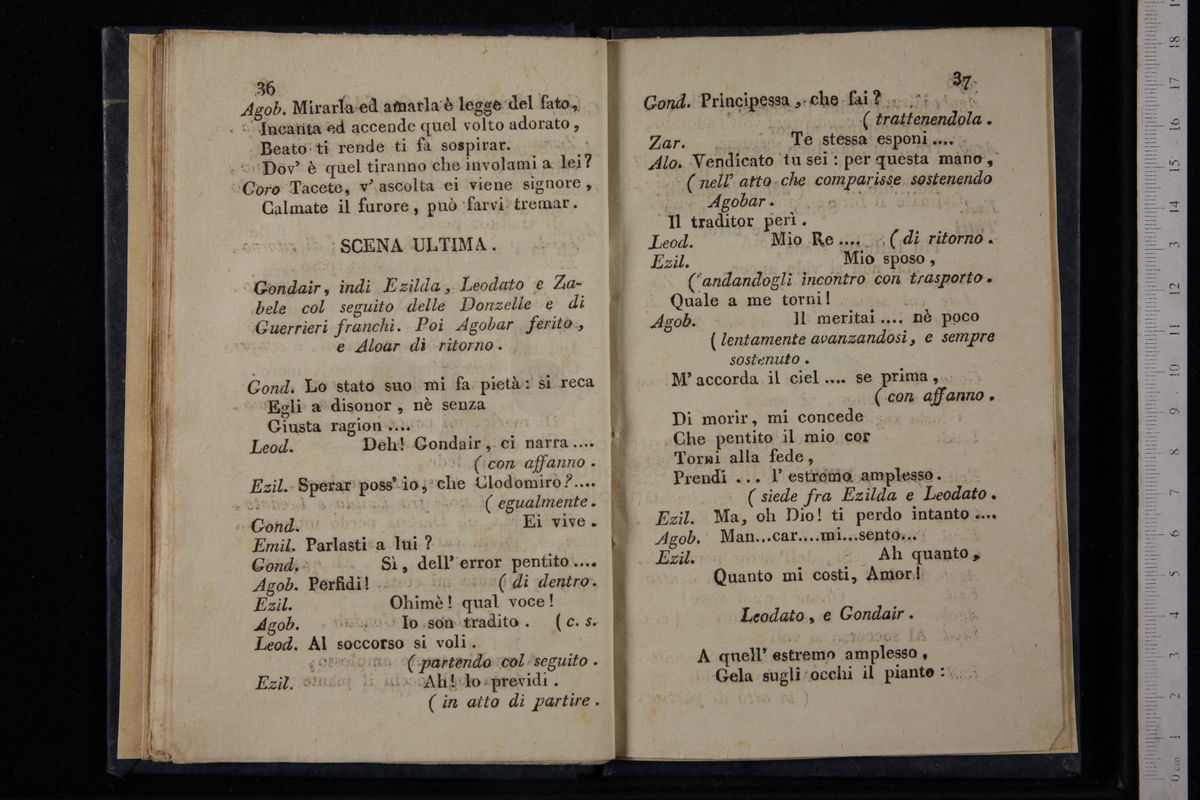 36
Agob. Mirarla ed amarla è legge del fato,
Incanta ed accende quel volto adorato,
Beato ti rende ti fà sospirar.
Dov' è quel tiranno che involami a lei?
Coro Tacete, v' ascolta ei viene signore,
Calmate il furore, può farvi tremar.
SCENA ULTIMA.
Gondair, indi Ezilda, Leodato e Za-
bele col seguito delle Donzelle e di
Guerrieri franchi. Poi Agobar ferito,
e Aloar di ritorno.
Gond. Lo stato suo mi fa pietà: si reca
Egli a disonor, nè senza
Giusta ragion ....
Leod. Deh! Gondair, ci narra ....
( con affanno.
Ezil. Sperar poss' io, che Clodomiro?....
( egualmente.
Gond. Ei vive.
Emil. Parlasti a lui?
Gond. Sì, dell' error pentito ....
Agob. Perfidi! ( di dentro.
Ezil. Ohimè! qual voce!
Agob. Io son tradito. ( c. s.
Leod. Al soccorso si voli.
( partendo col seguito.
Ezil. Ah! lo previdi.
( in atto di partire.
37
Gond. Principessa, che fai?
( trattenendola.
Zar. Te stessa esponi ....
Alo. Vendicato tu sei: per questa mano,
( nell' atto che comparisse sostenendo
Agobar.
Il traditor perì.
Leod. Mio Re .... ( di ritorno.
Ezil. Mio sposo,
( andandogli incontro con trasporto.
Quale a me torni!
Agob. Il meritai .... nè poco
( lentamente avanzandosi, e sempre
sostenuto.
M' accorda il ciel .... se prima,
( con affanno.
Di morir, mi concede
Che pentito il mio cor
Torni alla fede,
Prendi ... l' estremo amplesso.
( siede fra Ezilda e Leodato.
Ezil. Ma, oh Dio! ti perdo intanto ....
Agob. Man...car....mi...sento...
Ezil. Ah quanto,
Quanto mi costi, Amor!
Leodato, e Gondair.
A quell' estremo amplesso,
Gela sugli occhi il pianto: